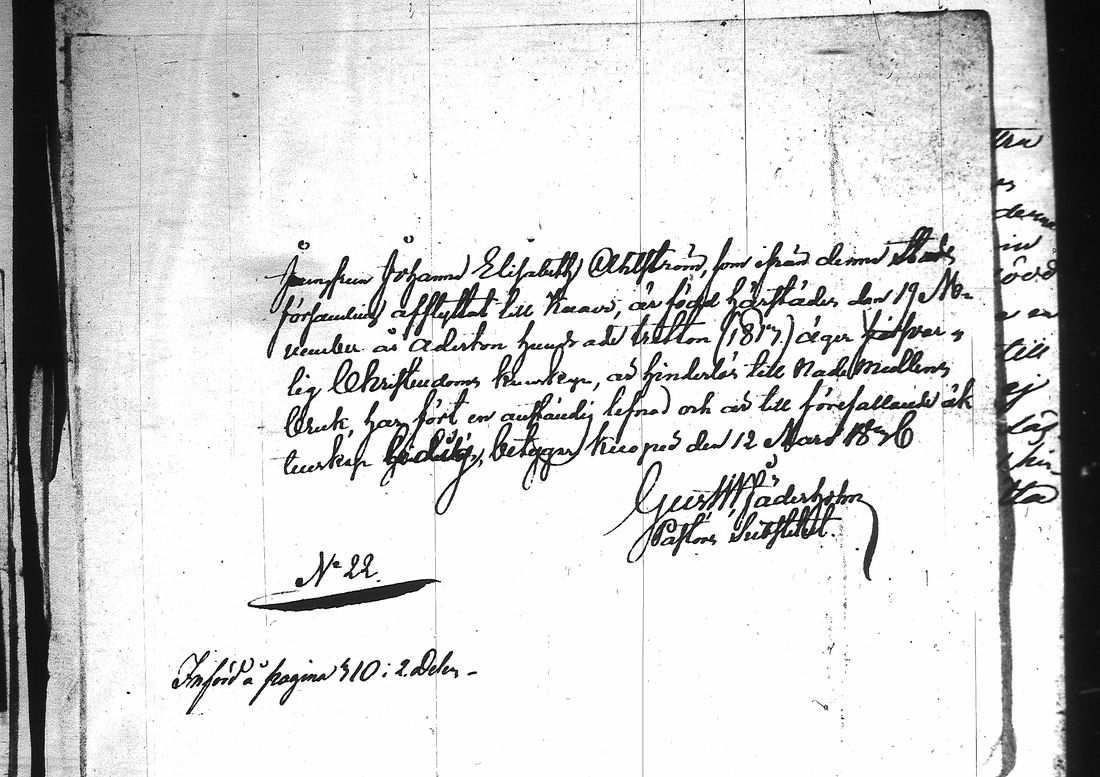 Jungfrun Johanna Elisabeth Ahlström, som ifrån denna Stads
församling afflyttat till, är född härstädes den 19 No-
vember år Aderton hundrade tretton (1813) äger
lig Christendoms kunskap, är hinderlös till Nade Medlens
bruk, har fört en anständig lefnad och är till förefallande äk
tenskap ledig, betygar Kuopio den 12 Mars 1836
Gust W Söderholm
Pastors Substitut.
N° 22.
Införd å pagina 310 i 2. Delen
tra
es
derne
in
till
ej